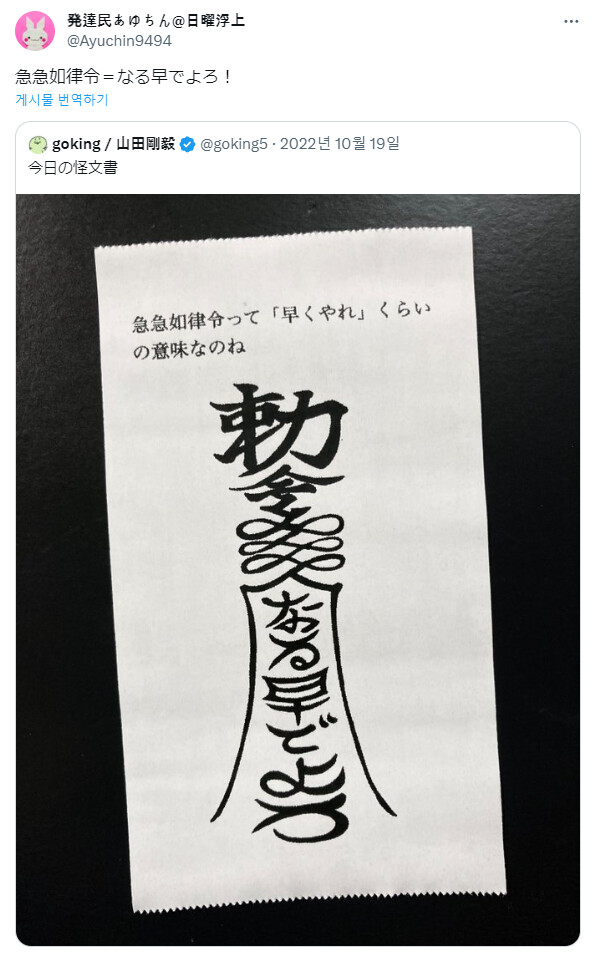 発達民あゆちん@日曜浮上
@Ayuchin9494
急急如律令＝なる早でよろ！
게시물 번역하기
goking / 山田剛毅 @goking5 · 2022년 10월 19일
今日の怪文書
急急如律令って「早くやれ」くらい
の意味なのね
勅
令
なる早でよろ